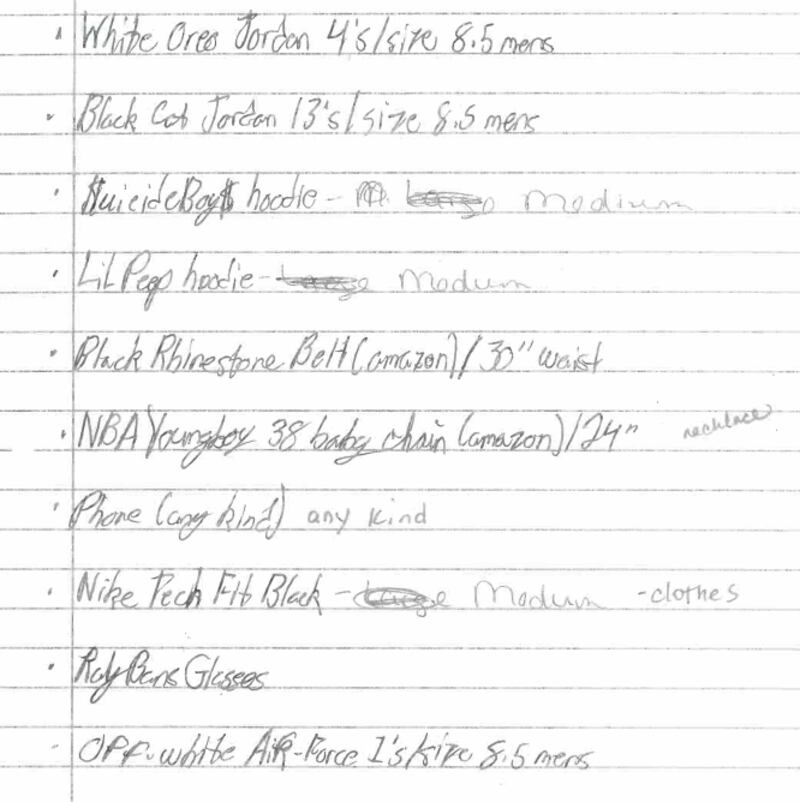 · White Oreo Jordan 4's/size 8.5 mens
· Black Cat Jordan 13's/size 8.5 mens
· $uicideBoy$ hoodie - Medium
· Lil Peep hoodie - Large Modum
· Black Rhinestone Belt (amazon)/30" waist
· NBA Youngboy 38 baby chain (amazon)/24" necklace
· Phone (any kind) any kind
· Nike Tech Fit Black - Large Modum - clothes
· Ray Bans Glasses
· OFF-white Air-Force 1's/size 8.5 mens